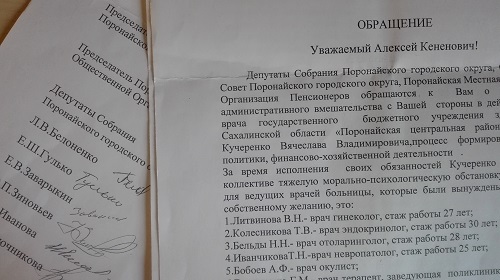 Председатель
Поронайского
Председатель Пор
Общественной Орг
Депутаты Собрания
Поронайского городского о
Л.В.Белоненко
Е.Ш.Гулько
Е.В.Заварыкин
П.Зиновьев
Иванова
очникова
ОБРАЩЕНИЕ
Уважаемый Алексей Кененович!
Депутаты Собрания Поронайского городского округа,
Совет Поронайского городского округа, Поронайская Местная
Организация Пенсионеров обращаются к Вам о
административного вмешательства с Вашей стороны в дея
врача государственного бюджетного учреждения з
Сахалинской области «Поронайская центральная район
Кучеренко Вячеслава Владимировича,процесс формиров
политики, финансово-хозяйственной деятельности .
За время исполнения своих обязанностей Кучеренко
коллективе тяжелую морально-психологическую обстановку
для ведущих врачей больницы, которые были вынужден
собственному желанию, это:
1.Литвинова В.Н.- врач гинеколог, стаж работы 27 лет;
2.Колесникова Т.В.- врач эндокринолог, стаж работы 30 лет;
3.Бельды Н.Н.- врач отоларинголог, стаж работы 28 лет;
4.ИванчиковаТ.Н.-врач невропатолог, стаж работы 25 лет;
5.Бобоев А.Ф.- врач окулист;
Г.М.- врач терапевт, заведующая поликлиник